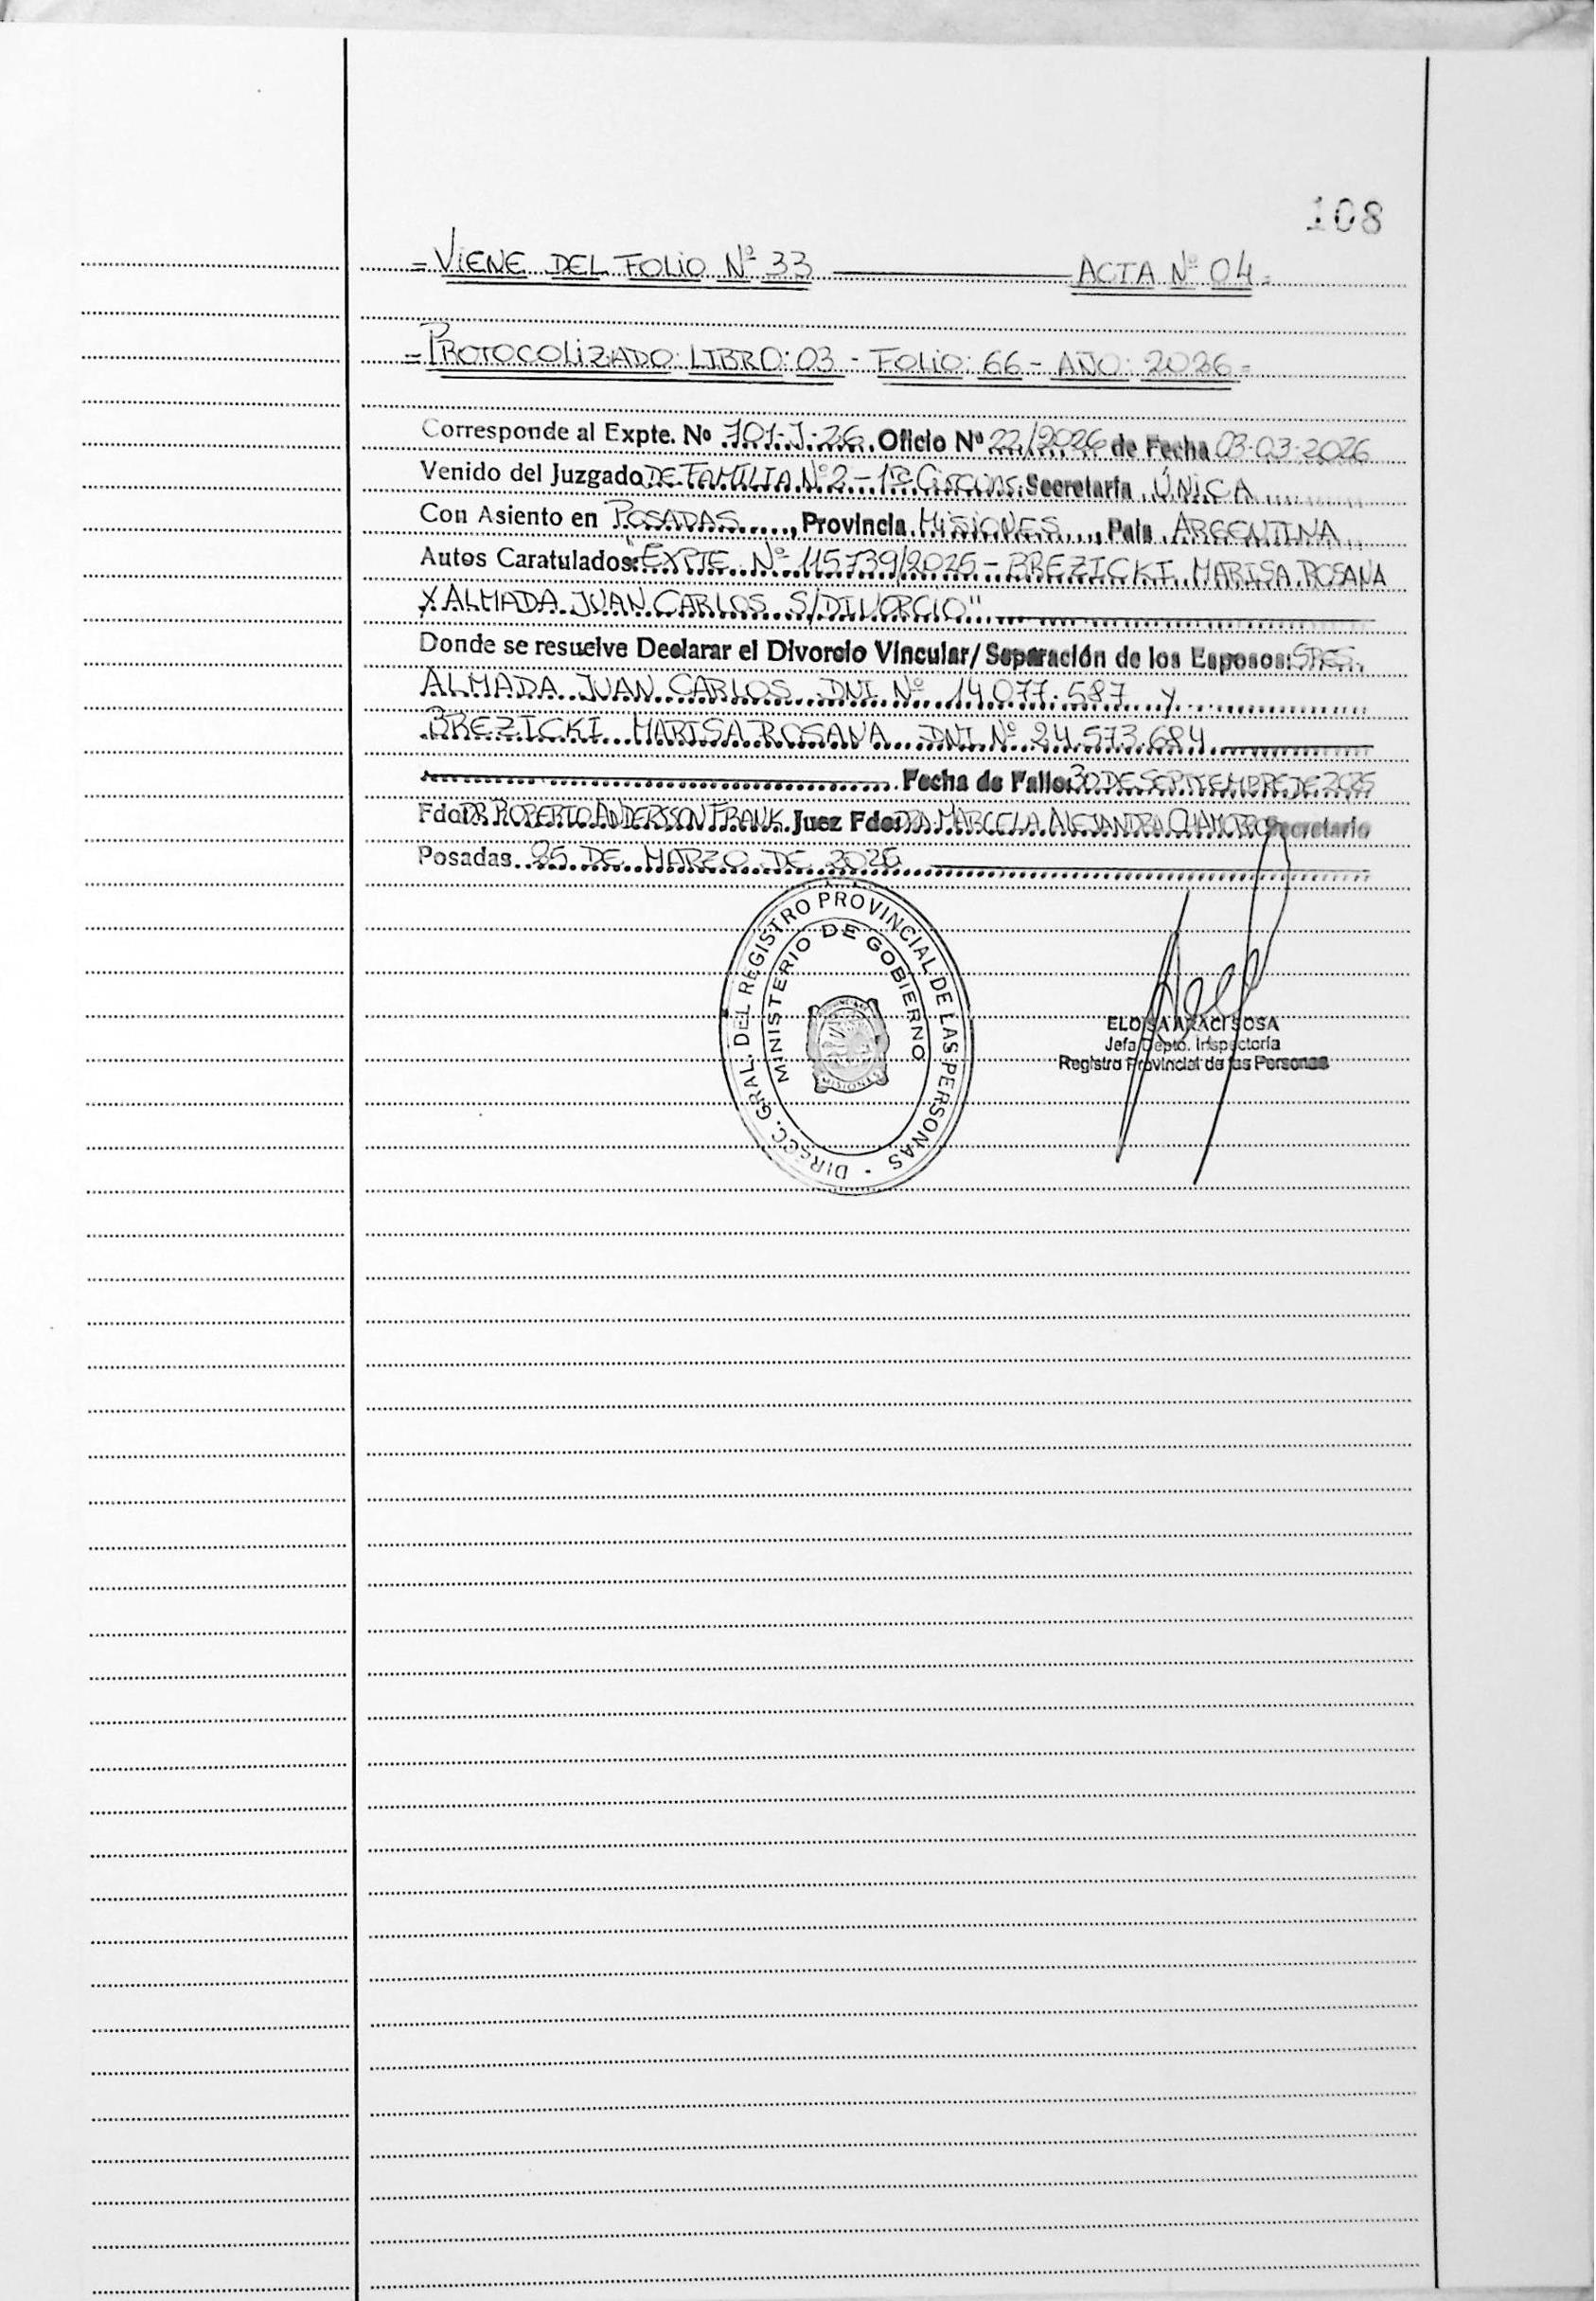 108
= VIENE DEL FOLIO Nº 33 ACTA Nº 04 =
= PROTOCOLIZADO: LIBRO: 03 - FOLIO: 66 - AÑO: 2026 =
Corresponde al Expte. Nº 701-J-26 Oficio Nº 22/2026 de Fecha 03-03-2026
Venido del Juzgado DE FAMILIA Nº 2 - 1ra Circuns. Secretaría ÚNICA
Con Asiento en POSADAS, Provincia MISIONES, País ARGENTINA
Autos Caratulados: "EXPTE Nº 115739/2025 - BREZICKI MARISA ROSANA
Y ALMADA JUAN CARLOS S/DIVORCIO"
Donde se resuelve Declarar el Divorcio Vincular/ Separación de los Esposos: SRES.
ALMADA JUAN CARLOS DNI Nº 14.077.587 y
BREZICKI MARISA ROSANA DNI Nº 24.573.684
Fecha de Fallo: 30 DE SEPTIEMBRE DE 2025
Fdo: DR ROBERTO ANDERSSON FRANK Juez Fdo: DRA MARCELA ALEJANDRA CHAMORRO Secretario
Posadas 25 DE MARZO DE 2026
DIRECC. GRAL. DEL REGISTRO PROVINCIAL DE LAS PERSONAS
MINISTERIO DE GOBIERNO
MISIONES
ELOISA ARACI SOSA
Jefa Depto. Inspectoría
Registro Provincial de las Personas